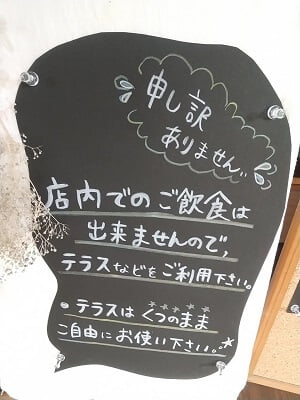 申し訳
ありません。
店内でのご飲食は
出来ませんので、
テラスなどをご利用下さい。
• テラスは くつのまま
ご自由にお使い下さい。